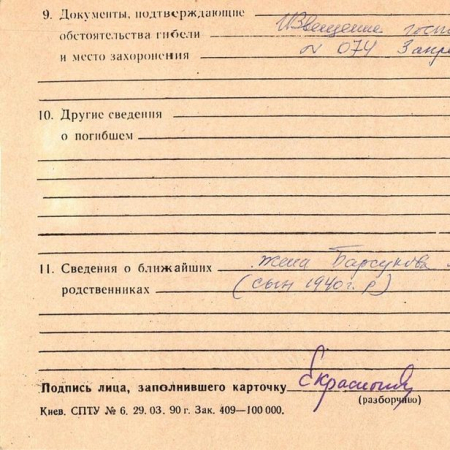 9. Документы, подтверждающие Извещение
обстоятельства гибели
и место захоронения № 074
10. Другие сведения
о погибшем
11. Сведения о ближайших жена Барсукова
родственниках (сын 1940 г. р)
Подпись лица, заполнившего карточку
(разборчиво)
Киев. СПТУ № 6. 29. 03. 90 г. Зак. 409—100 000.